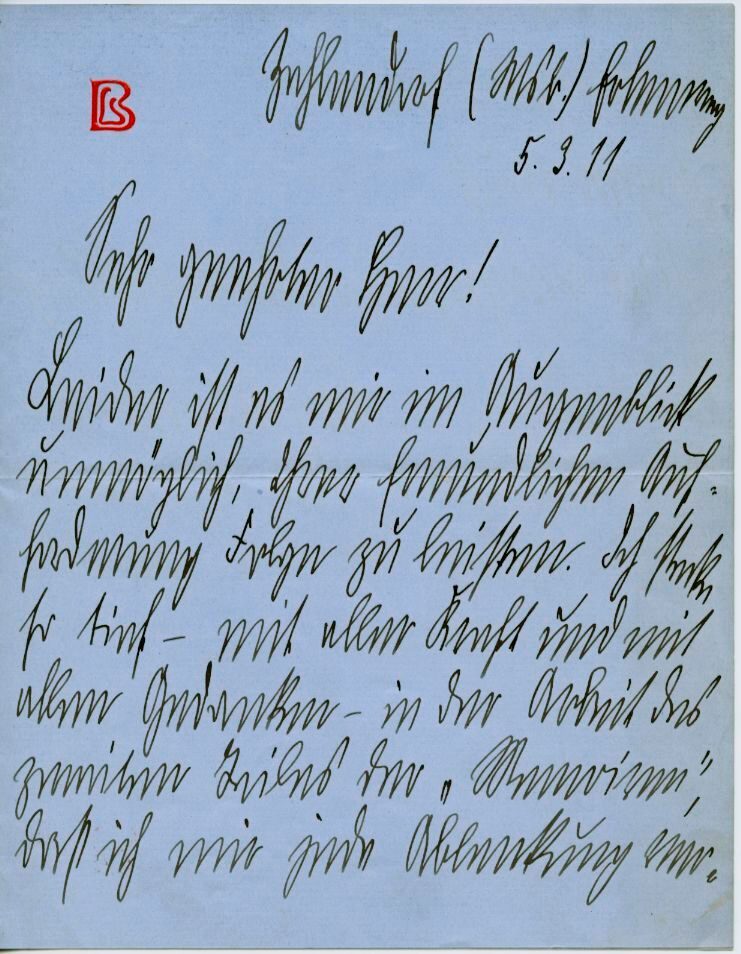 LB
Zehlendorf (Wsb.) Erlenweg
5. 3. 11
Sehr geehrter Herr!
Leider ist es mir im Augenblick
unmöglich, Ihrer freundlichen Auf-
forderung Folge zu leisten. Ich stecke
so tief – mit aller Kraft und mit
allen Gedanken – in der Arbeit des
zweiten Teiles der „Memoiren",
daß ich mir jede Ablenkung ver-